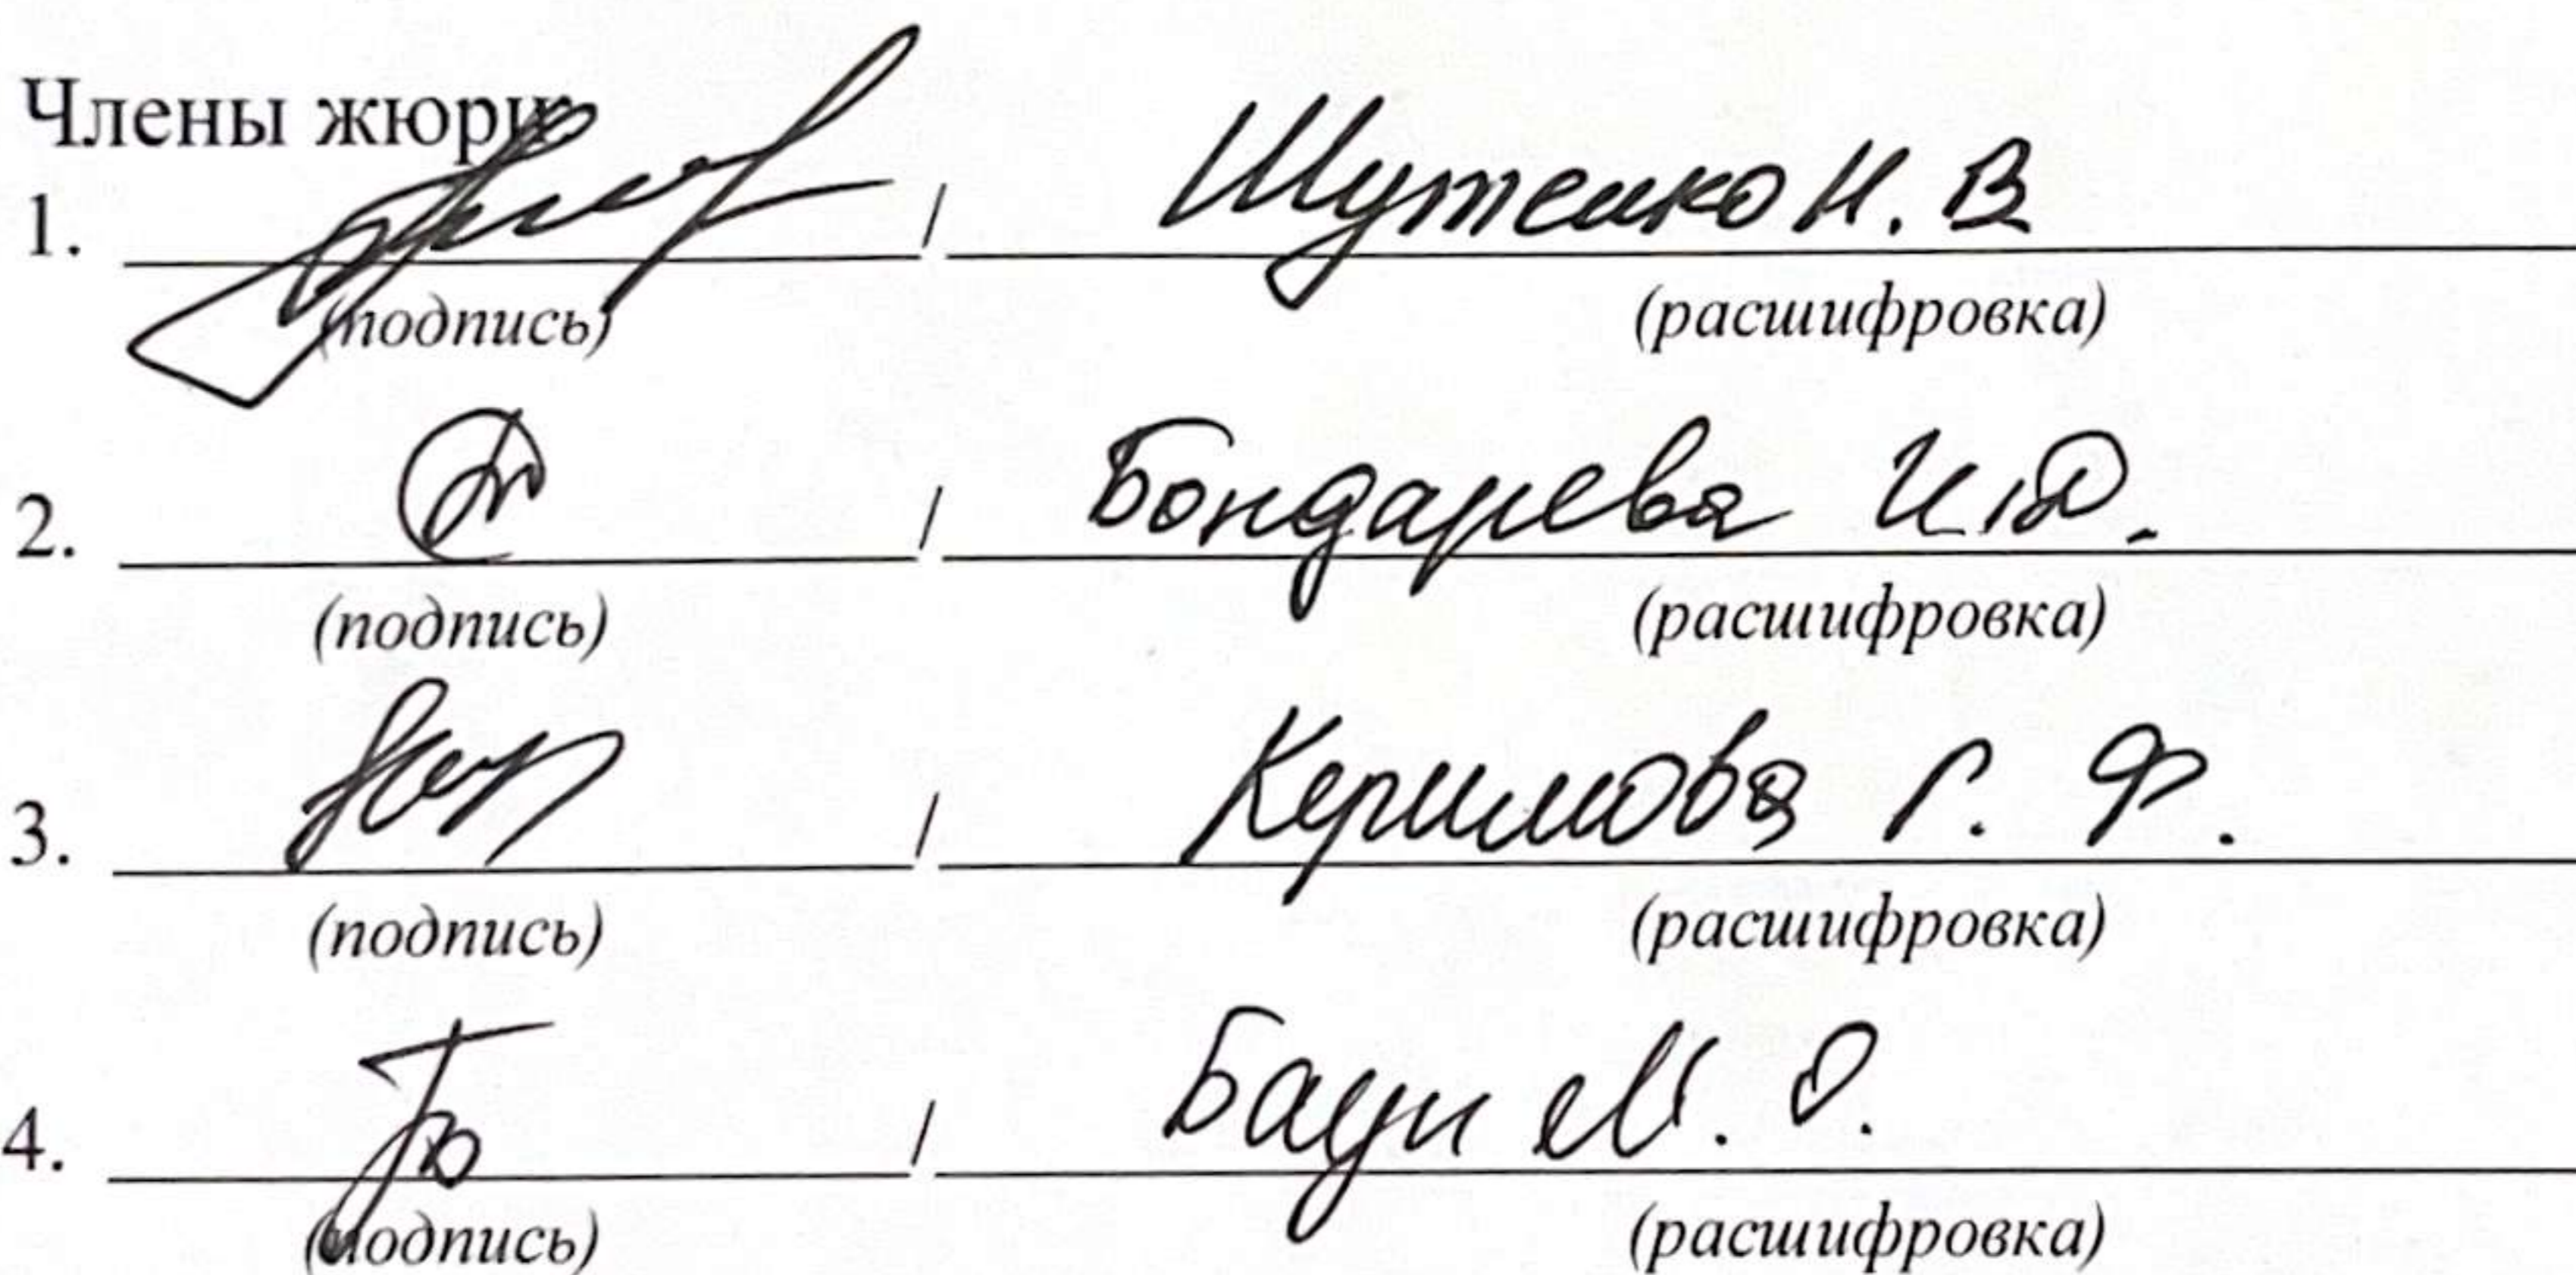 Члены жюри
1. / Шутенко Н. В
(подпись) (расшифровка)
2. / Бондарева И.Д.
(подпись) (расшифровка)
3. / Керимова Г. Ф.
(подпись) (расшифровка)
4. / М. О.
(подпись) (расшифровка)